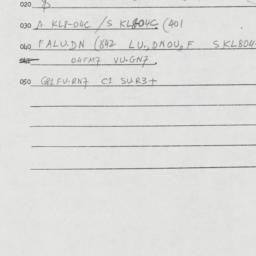 020 $
030 A KL8-04C / S KL804C (401
040 P ALU.DN (842 LU.,DNOU,F SKL804
04FM7 VU-GN7.
050 GRLFU-RN7 C1 SU-R3+